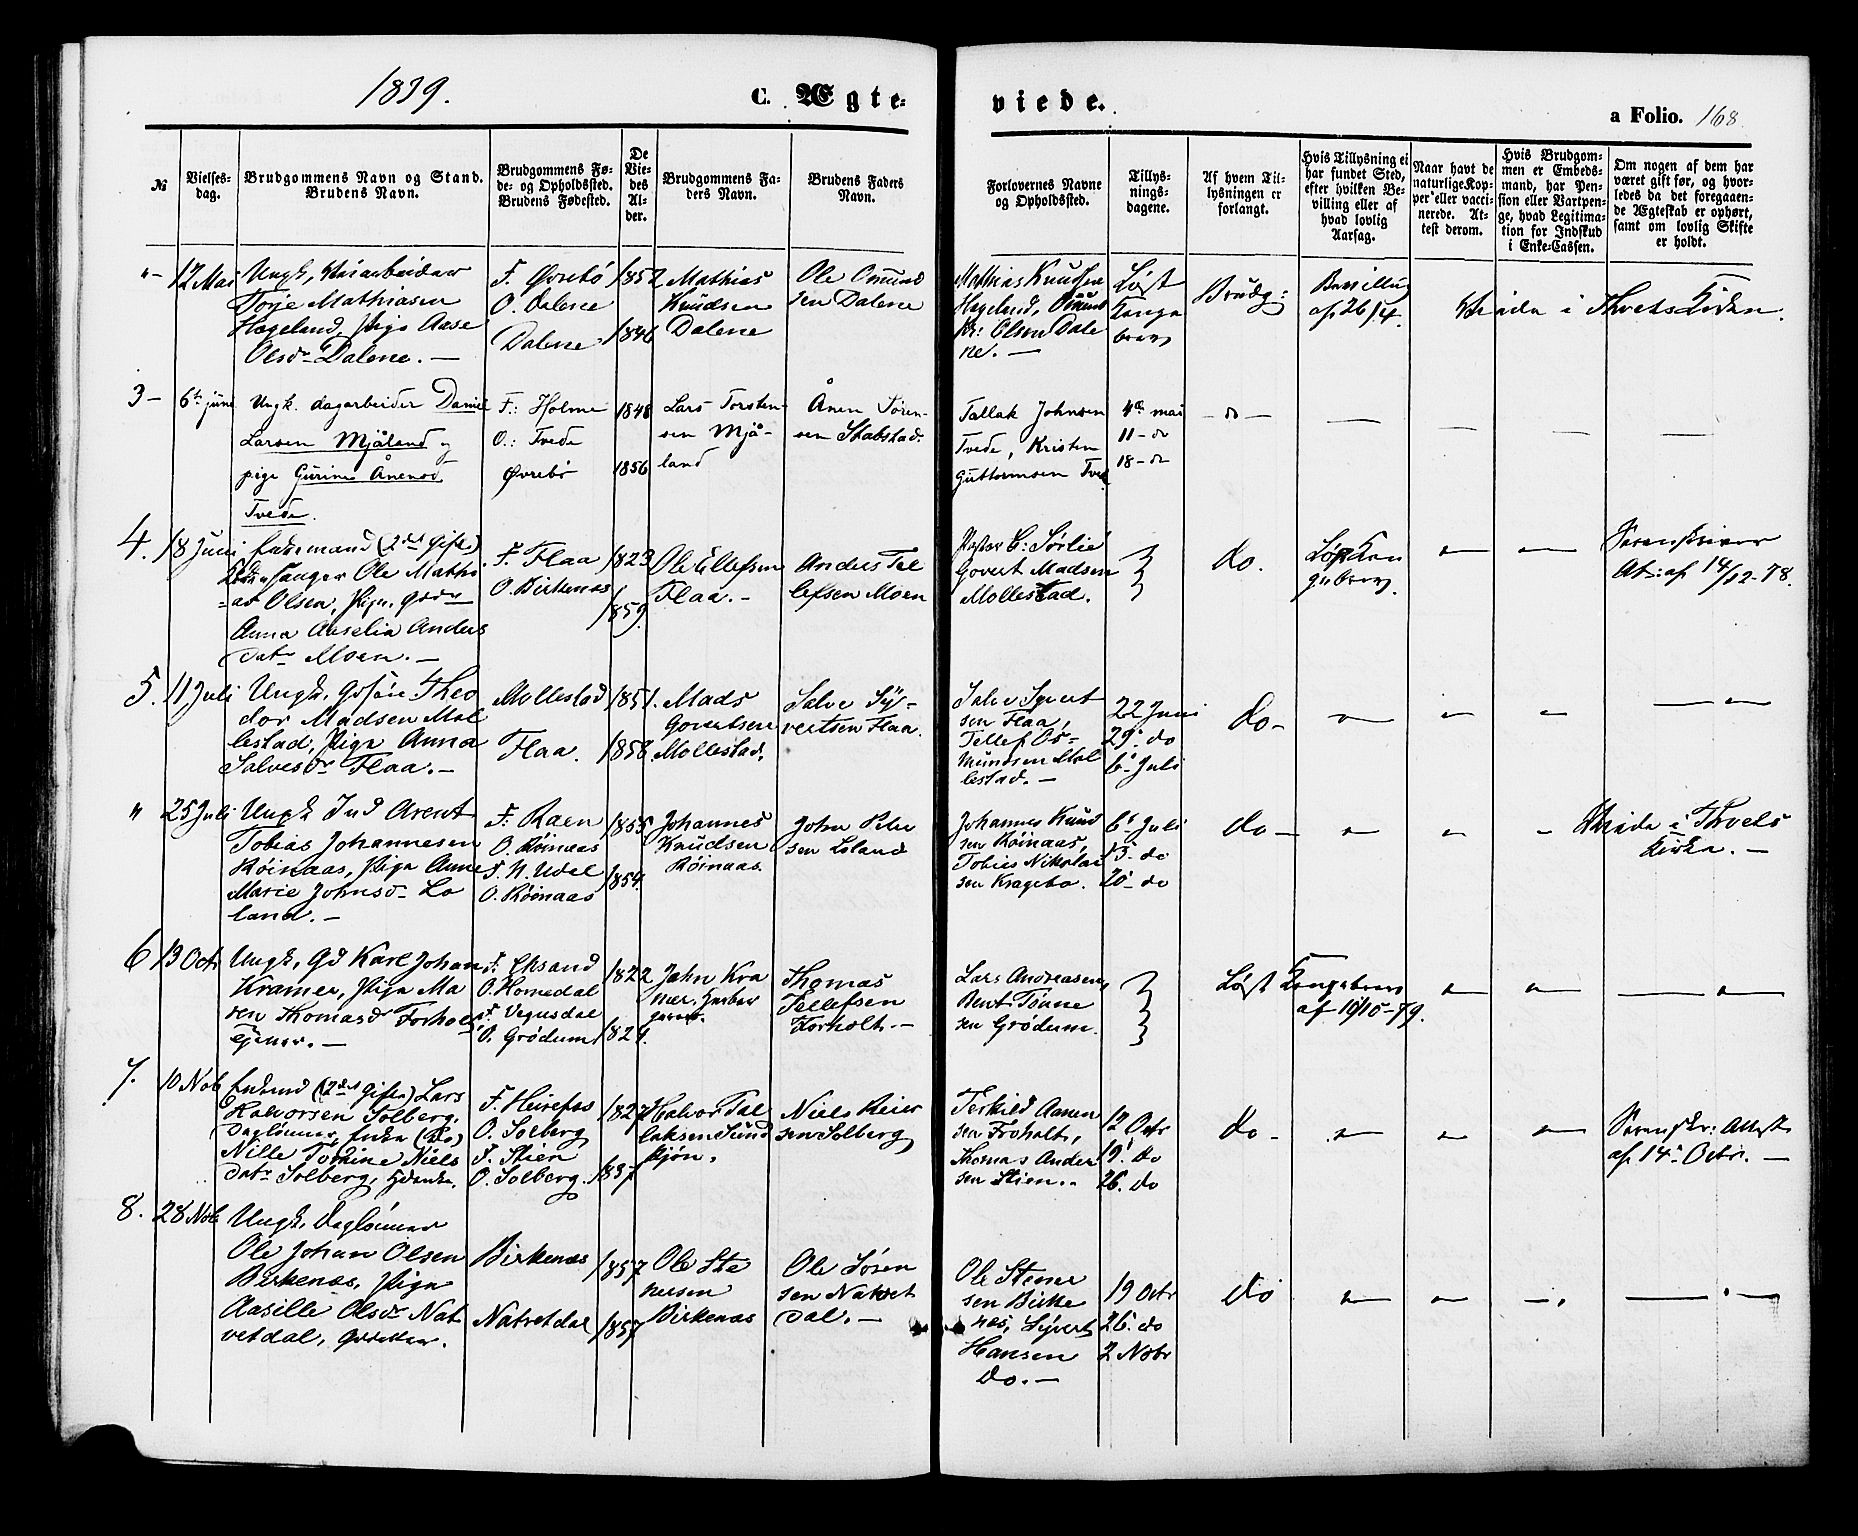 1839.
C. Ægte-
viede.
a Folio. 168
№
Vielses-
dag.
Brudgommens Navn og Stand.
Brudens Navn.
Brudgommens Fø-
de- og Opholdssted.
Brudens Fødested.
De
Vie-
des
Al-
der.
Brudgommens Fa-
ders Navn.
Brudens Faders
Navn.
Forlovernes Navne
og Opholdssted.
Tillys-
nings-
dagene.
Af hvem Til-
lysningen er
forlangt.
Hvis Tillysning ei
har fundet Sted,
efter hvilken Be-
villing eller af
hvad lovlig
Aarsag.
Naar havt de
naturlige Kop-
per eller vacci-
nerede. At-
test derom.
Hvis Brudgom-
men er Embeds-
mand, har Pen-
sion eller Vartpen-
ge, hvad Legitima-
tion for Indskud
i Enke-Cassen.
Om nogen af dem har
været gift før, og hvor-
ledes da det foregaaen-
de Ægteskab er ophørt,
samt om lovlig Skifte
er holdt.
"-
12 Mai
Ungk,
Torje Mathiasen
Hægeland, Pige Aase
Olsdr Dalene. —
F. Øvrebø
O. Dalene
Dalene
1852
1846
Mathias
Knudsen
Dalene
Ole Omund
sen Dalene
Mathias Knudsen
Hægeland, Omund
Olsen Dale
ne. —
Løst
Konge
brev
Brudg:
af 26/4.
i Thvets Kirken.
3 —
6te juni
Ungk. dagarbeider Daniel
Larsen Mjåland og
pige Gurine Ånensd.
Tvede.
F.: Holme
O.: Tvede
Øvrebø
1848
1856
Lars Torsten-
sen Mjå-
land
Ånen Søren-
sen Stabstad.
Tallak Johnsen
Tvede, Kristen
Guttormsen Tved
4de mai
11 - do
18 - do
— do —
— — — —
4.
18 Juni
Enkemand (2det Gifte)
Kirkesanger Ole Mathi
as Olsen, Pige,
Anna Aaselia Anders
datr Moen. —
F. Flaa
O. Birkenæs
1823
1859.
Ole Ellefsen
Flaa. —
Anders Tel
lefsen Moen
Pastor C: Sørlie
Govert Madsen
Mollestad.
do.
Løst Kon
gebrev.
— —
Sorenskriver
At: af 14/12-78.
5.
11 Juli
Ungk. Theo
dor Madsen Mol
lestad, Pige Anna
Salvesdr Flaa. —
Mollestad
Flaa.
1851.
1858.
Mads
Govertsen
Mollestad.
Salve Sy-
vertsen Flaa.
Salve Syvert
sen Flaa,
Tellef Os-
mundsen Mol
lestad. —
22 Juni
29. do
6. Juli
do —
— — — —
"
25 Juli
Ungk Ind Arent
Tobias Johannesen
Røinaas, Pige Anne
Marie Johnsd- Lo
land. —
F: Raen
O. Røinaas
F. N. Udal
O. Røinaas
1855
1854.
Johannes
Knudsen
Røinaas.
John Peder
sen Loland
Johannes Knud
sen Røinaas,
Tobias Nikolai
sen Kragebo.
6. Juli
13. do
20. do
do —
— — —
i Thvets
Kirke. —
6
13 Octr
Ungk, Gd Karl Johan
Kramer, Pige Ma
ren Thomasd Forholt
tjener. —
F. Eksand
O. Homedal
F. Vegusdal
O. Grødum
1822
1824.
Jahn Kra
mer,
Thomas
Tellefsen
Forholt. —
Lars Andreasen,
Bent Tønne
sen Grødum.
Løst Kongebrev
af 19/10-79.
— — — —
7.
10 Nob
Enkmd (2det Gifte) Lars
Halvorsen Solberg,
Dagløner, Enke (do)
Nille Torkine Niels
datr Solberg,
F. Heirefos
O. Solberg
F. Stien
O. Solberg.
1827
1837
Halvor Tal
laksen Sund
tjøn.
Niels Reier
sen Solberg
Terkild Aanen
sen Froholt,
Thomas Ander
sen Stien. -
12 Octr
19. do
26. do
do -
— — —
Sorenskr: Attest
af 14. Octr. —
8.
28 Nob
Ungk. Dagløner
Ole Johan Olsen
Birkenæs, Pige
Aasille Olsdr Nat
vetdal,
Birkenæs
Natvetdal
1857
1857
Ole Ste
nersen
Birkenæs
Ole Søren
sen Natvet
dal. —
Ole Stener
sen Birke
næs, Syvert
Hansen
do. —
19 Octr
26. do
2 Nobr
do
— — — —